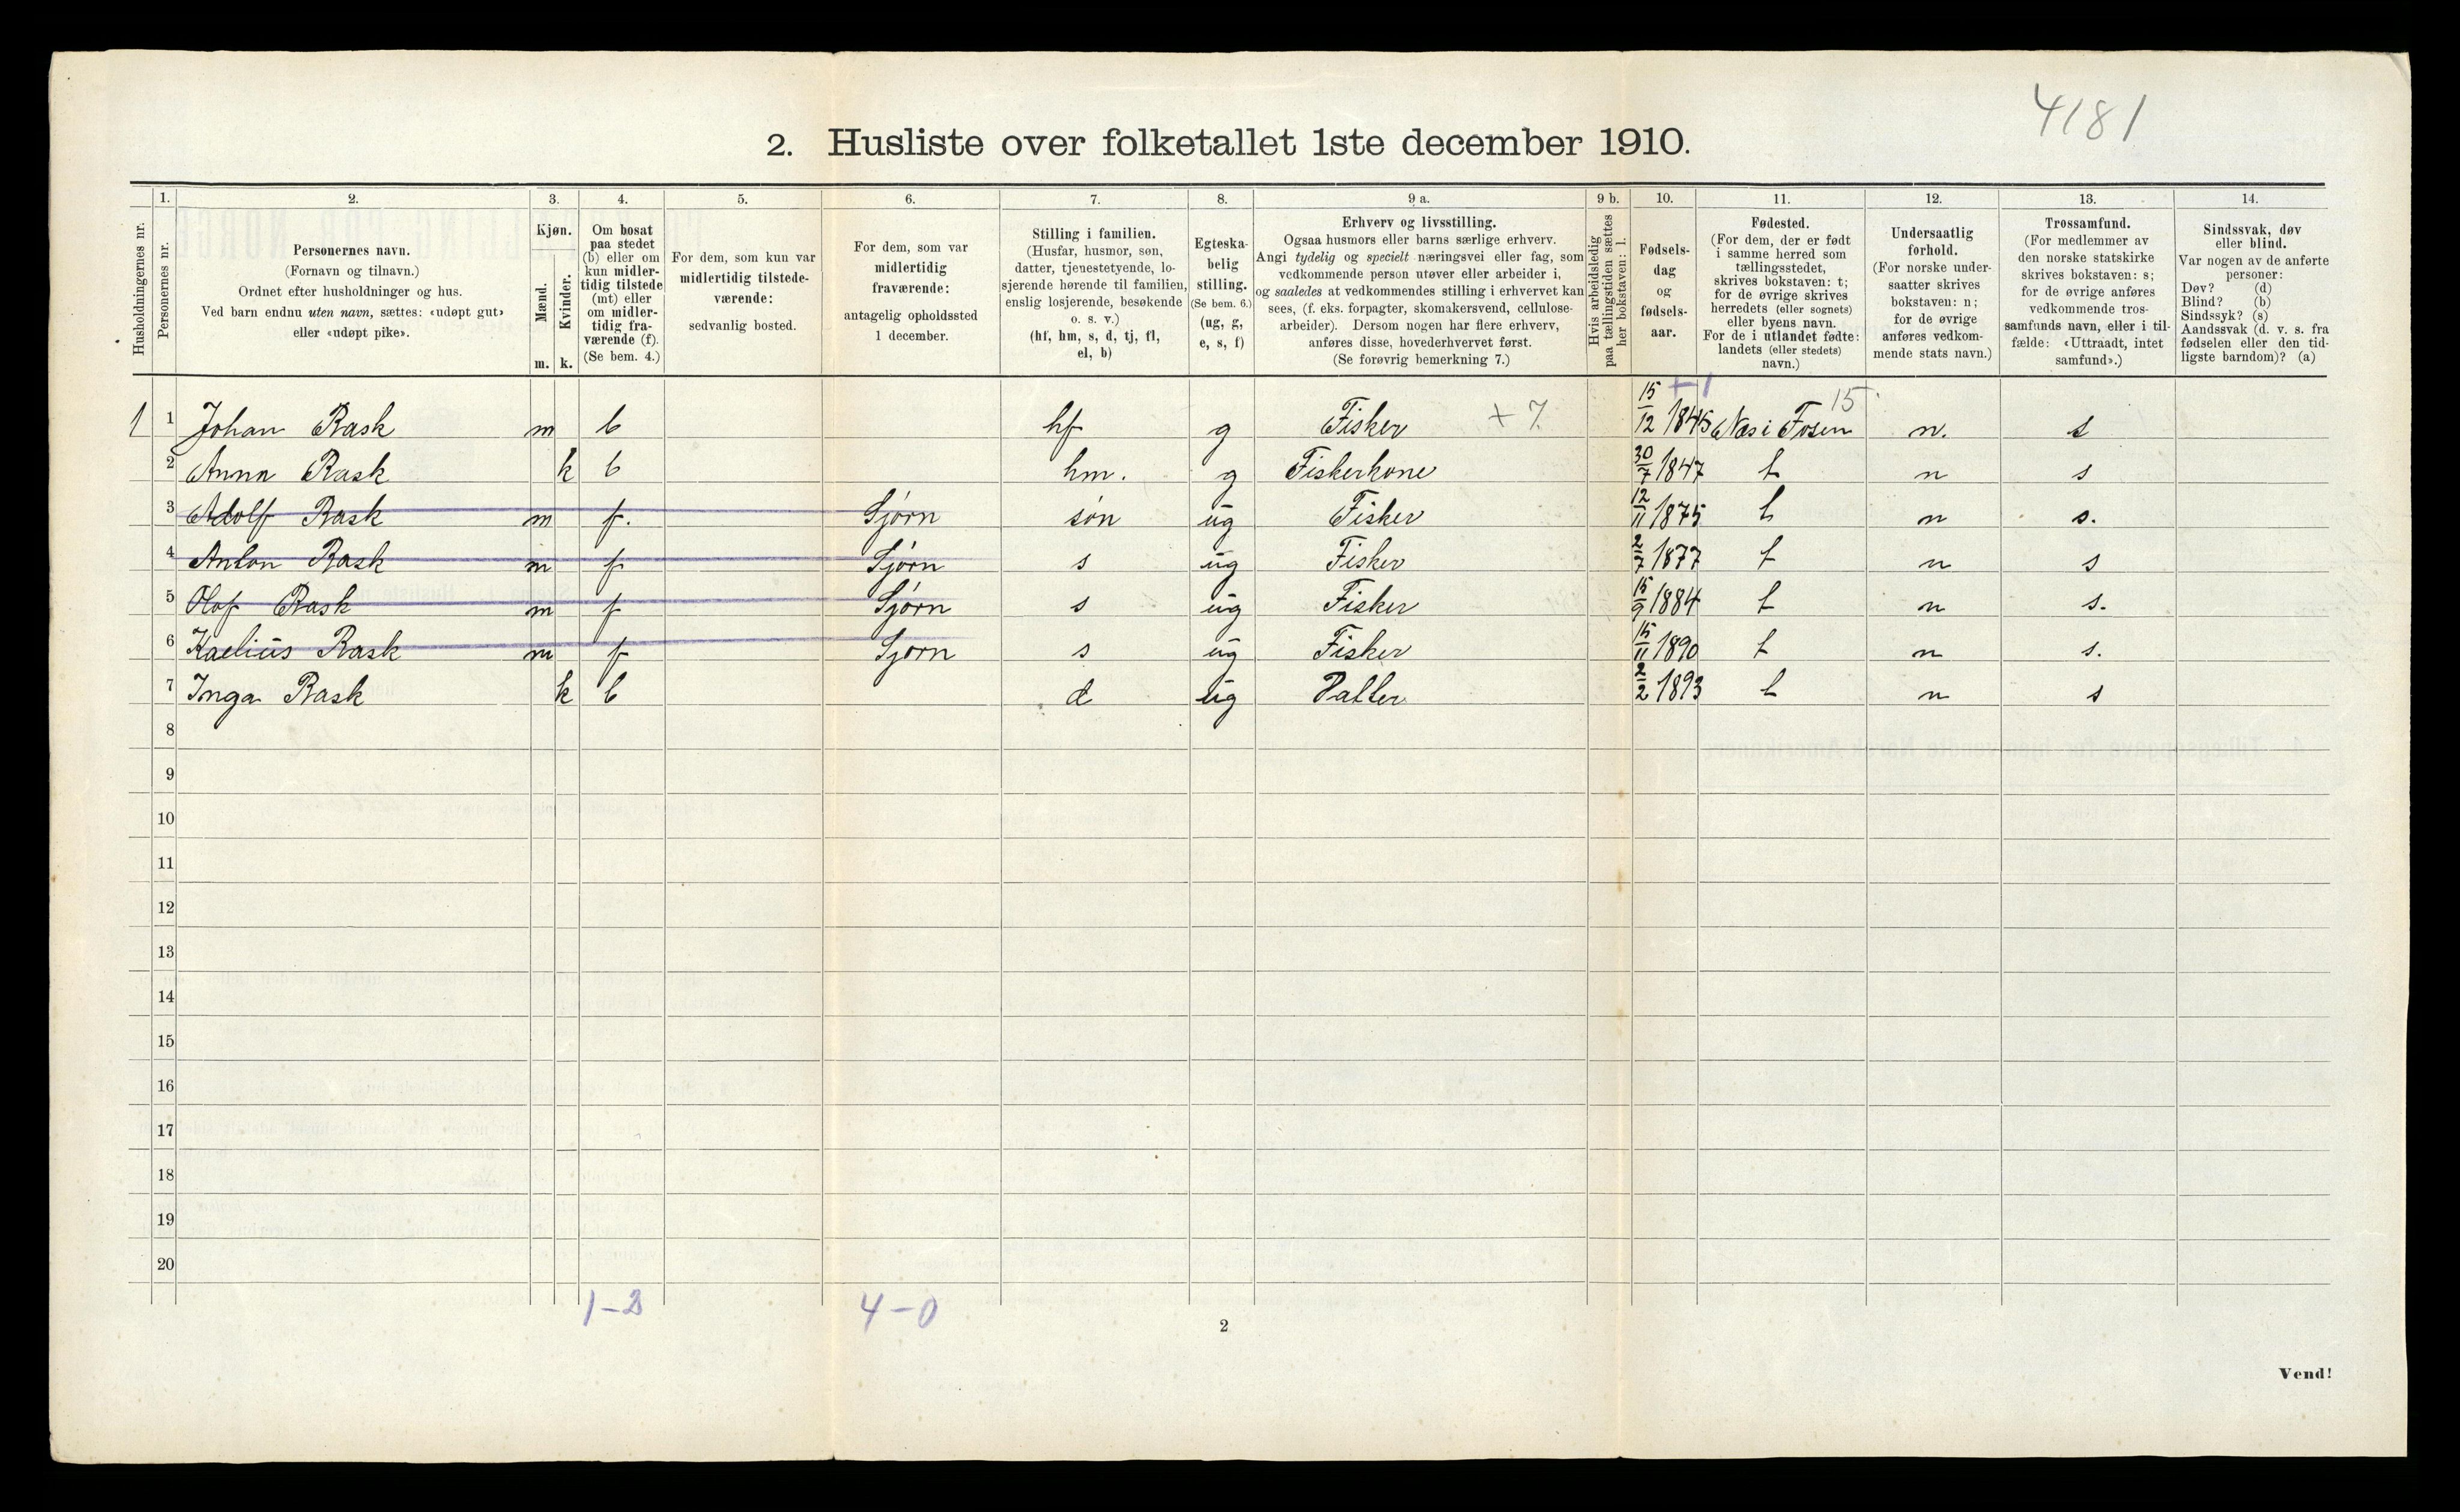 4181
2. Husliste over folketallet 1ste december 1910.
1. 2. 3. 4. 5. 6. 7. 8. 9 a. 9 b. 10. 11. 12. 13. 14.
Husholdningernes nr.
Personernes nr.
Personernes navn.
(Fornavn og tilnavn.)
Ordnet efter husholdninger og hus.
Ved barn endnu uten navn, sættes: «udøpt gut»
eller «udøpt pike».
Kjøn.
Mænd.
Kvinder.
m. k.
Om bosat
paa stedet
(b) eller om
kun midler-
tidig tilstede
(mt) eller
om midler-
tidig fra-
værende (f).
(Se bem. 4.)
For dem, som kun var
midlertidig tilstede-
værende:
sedvanlig bosted.
For dem, som var
midlertidig
fraværende:
antagelig opholdssted
1 december.
Stilling i familien.
(Husfar, husmor, søn,
datter, tjenestetyende, lo-
sjerende hørende til familien,
enslig losjerende, besøkende
o. s. v.)
(hf, hm, s, d, tj, fl,
el, b)
Egteska-
belig
stilling.
(Se bem. 6.)
(ug, g,
e, s, f)
Erhverv og livsstilling.
Ogsaa husmors eller barns særlige erhverv.
Angi tydelig og specielt næringsvei eller fag, som
vedkommende person utøver eller arbeider i,
og saaledes at vedkommendes stilling i erhvervet kan
sees, (f. eks. forpagter, skomakersvend, cellulose-
arbeider). Dersom nogen har flere erhverv,
anføres disse, hovederhvervet først.
(Se forøvrig bemerkning 7.)
Hvis arbeidsledig
paa tællingstiden sættes
her bokstaven: l.
Fødsels-
dag
og
fødsels-
aar.
Fødested.
(For dem, der er født
i samme herred som
tællingsstedet,
skrives bokstaven: t;
for de øvrige skrives
herredets (eller sognets)
eller byens navn.
For de i utlandet fødte:
landets (eller stedets)
navn.)
Undersaatlig
forhold.
(For norske under-
saatter skrives
bokstaven: n;
for de øvrige
anføres vedkom-
mende stats navn.)
Trossamfund.
(For medlemmer av
den norske statskirke
skrives bokstaven: s;
for de øvrige anføres
vedkommende tros-
samfunds navn, eller i til-
fælde: «Uttraadt, intet
samfund».)
Sindssvak, døv
eller blind.
Var nogen av de anførte
personer:
Døv? (d)
Blind? (b)
Sindssyk? (s)
Aandssvak (d. v. s. fra
fødselen eller den tid-
ligste barndom)? (a)
+1 15
1 1 Johan Rask m b hf g Fisker + 7. 15/12 1845 Næs i Fosen n. s
2 Anna Rask k b hm. g Fiskerkone 30/7 1847 t n s
3 Adolf Rask m f. Sjørn søn ug Fisker 12/11 1875 t n s.
4 Anton Rask m f Sjørn s ug Fisker 2/7 1877 t n s
5 Olof Rask m f Sjørn s ug Fisker 15/9 1884 t n s.
6 Kaelius Rask m f Sjørn s ug Fisker 15/11 1890 t n s.
7 Inga Rask k b d ug Datter 2/2 1893 t n s
8
9
10
11
12
13
14
15
16
17
18
19
20
1-2 4-0
2
Vend!